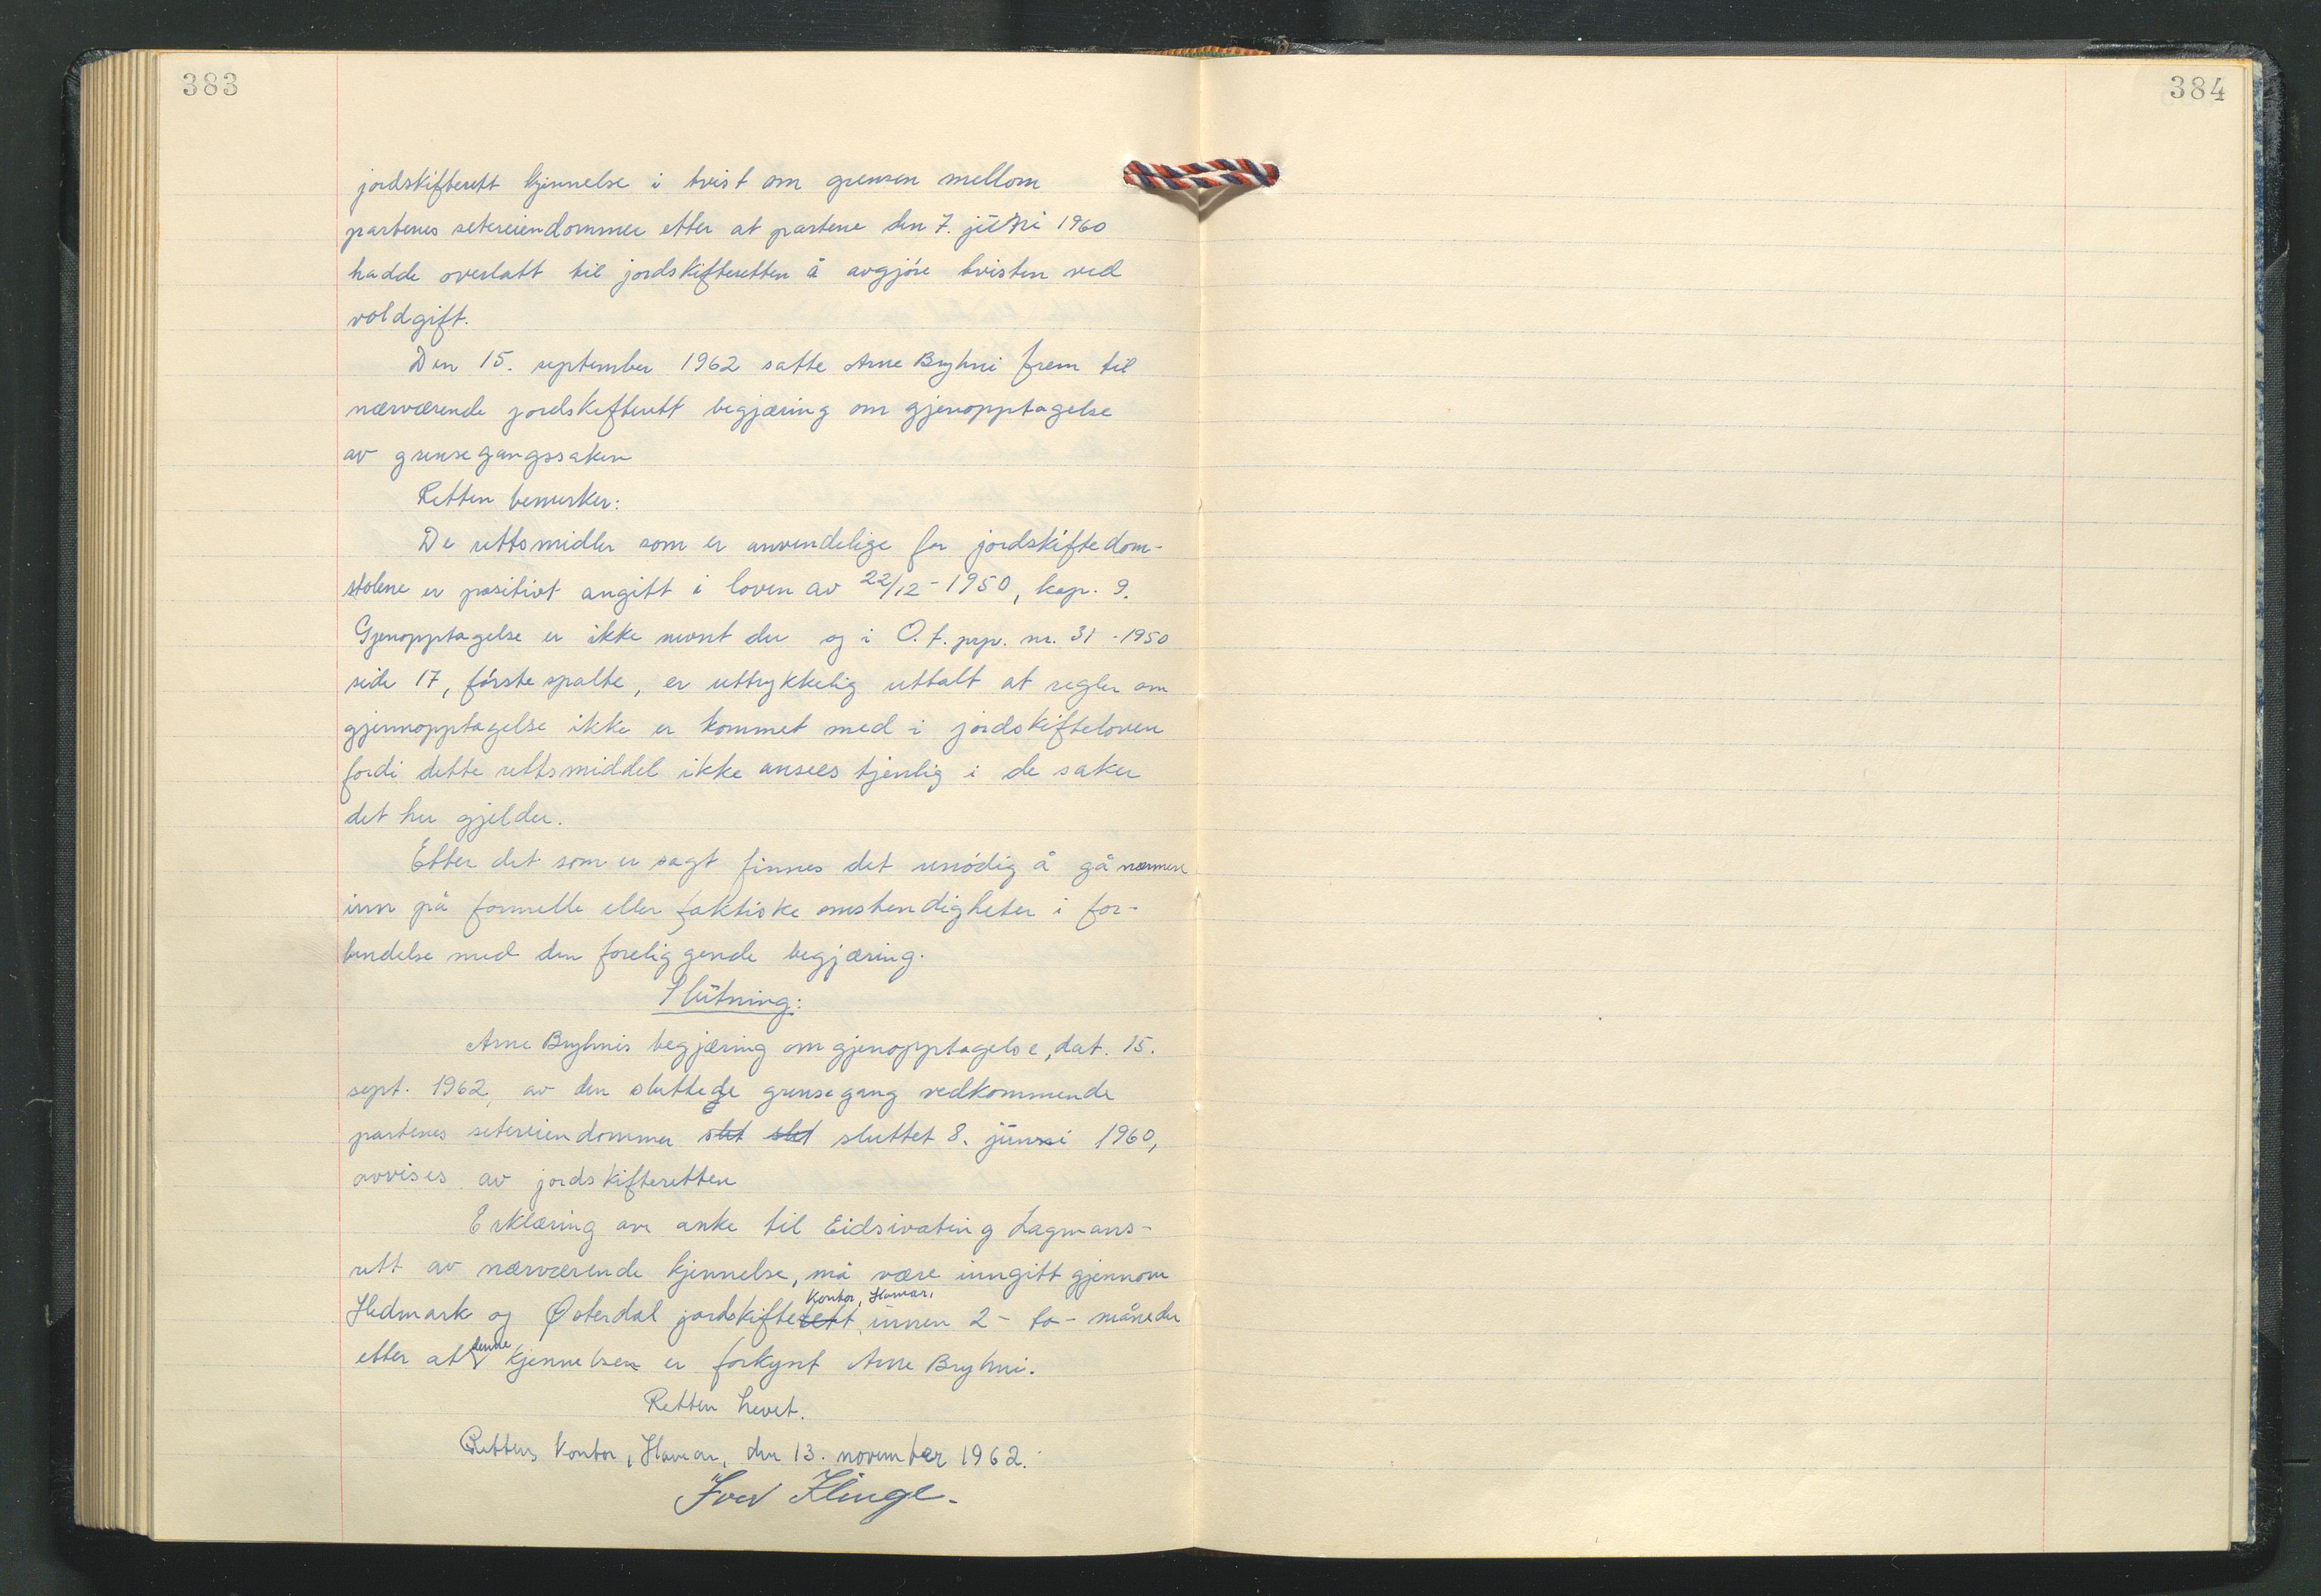 383
384
jordskifterett kjennelse i tvist om grensen mellom
partenes setereiendommer etter at partene den 7. juni 1960
hadde overlatt til jordskifteretten å avgjøre tvisten ved
voldgift.
Den 15. september 1962 satte Arne Bryhni frem til
nærværende jordskifterett begjæring om gjenopptagelse
av grensegangssaken
Retten bemerker:
De rettsmidler som er anvendelige for jordskiftedom-
stolene er positivt angitt i loven av 22/12-1950, kap. 9.
Gjenopptagelse er ikke nevnt der og i O.t. prp. nr. 31 - 1950
side 17, første spalte, er uttrykkelig uttalt at regler om
gjennopptagelse ikke er kommet med i jordskifteloven
fordi dette rettsmiddel ikke ansees tjenlig i de saker
det her gjelder.
Etter det som er sagt finnes det unødig å gå nærmere
inn på formelle eller faktiske omstendigheter i for-
bindelse med den foreliggende begjæring.
Slutning:
Arne Bryhnis begjæring om gjenopptagelse, dat. 15.
sept. 1962, av den sluttede grensegang vedkommende
partenes setereiendommer slet slet sluttet 8. juni 1960,
avvises av jordskifteretten
Erklæring om anke til Eidsivating Lagmans-
rett av nærværende kjennelse, må være inngitt gjennom
kontor, Hamar,
Hedmark og Østerdal jordskifterett innen 2 - to - måneder
etter at denne kjennelsen er forkynt Arne Bryhni.
Retten hevet.
Rettens kontor, Hamar, den 13. november 1962.
Iver Klinge.